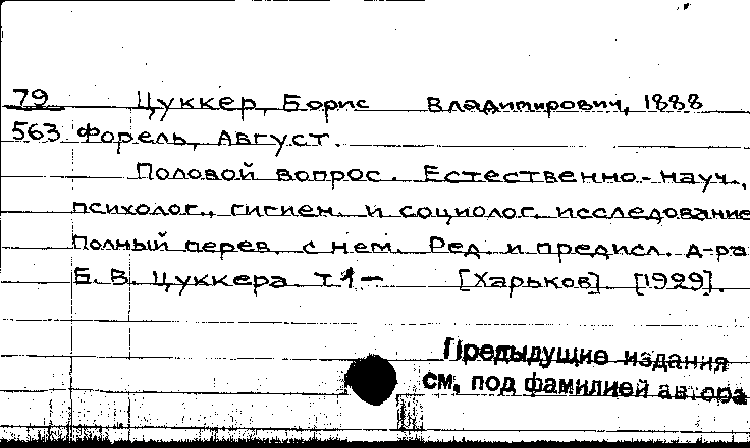 79 Цуккер, Борис Владимирович, 1888
563 Форель, Август.
Половой вопрос. Естественно-науч.,
психолог., гигиен. и социолог. исследование
Полный перев. с нем. Ред. и предисл. д-ра
Б. В. Цуккера. Т. 1- [Харьков]. [1929].
Предыдущие издания
см. под фамилией автора